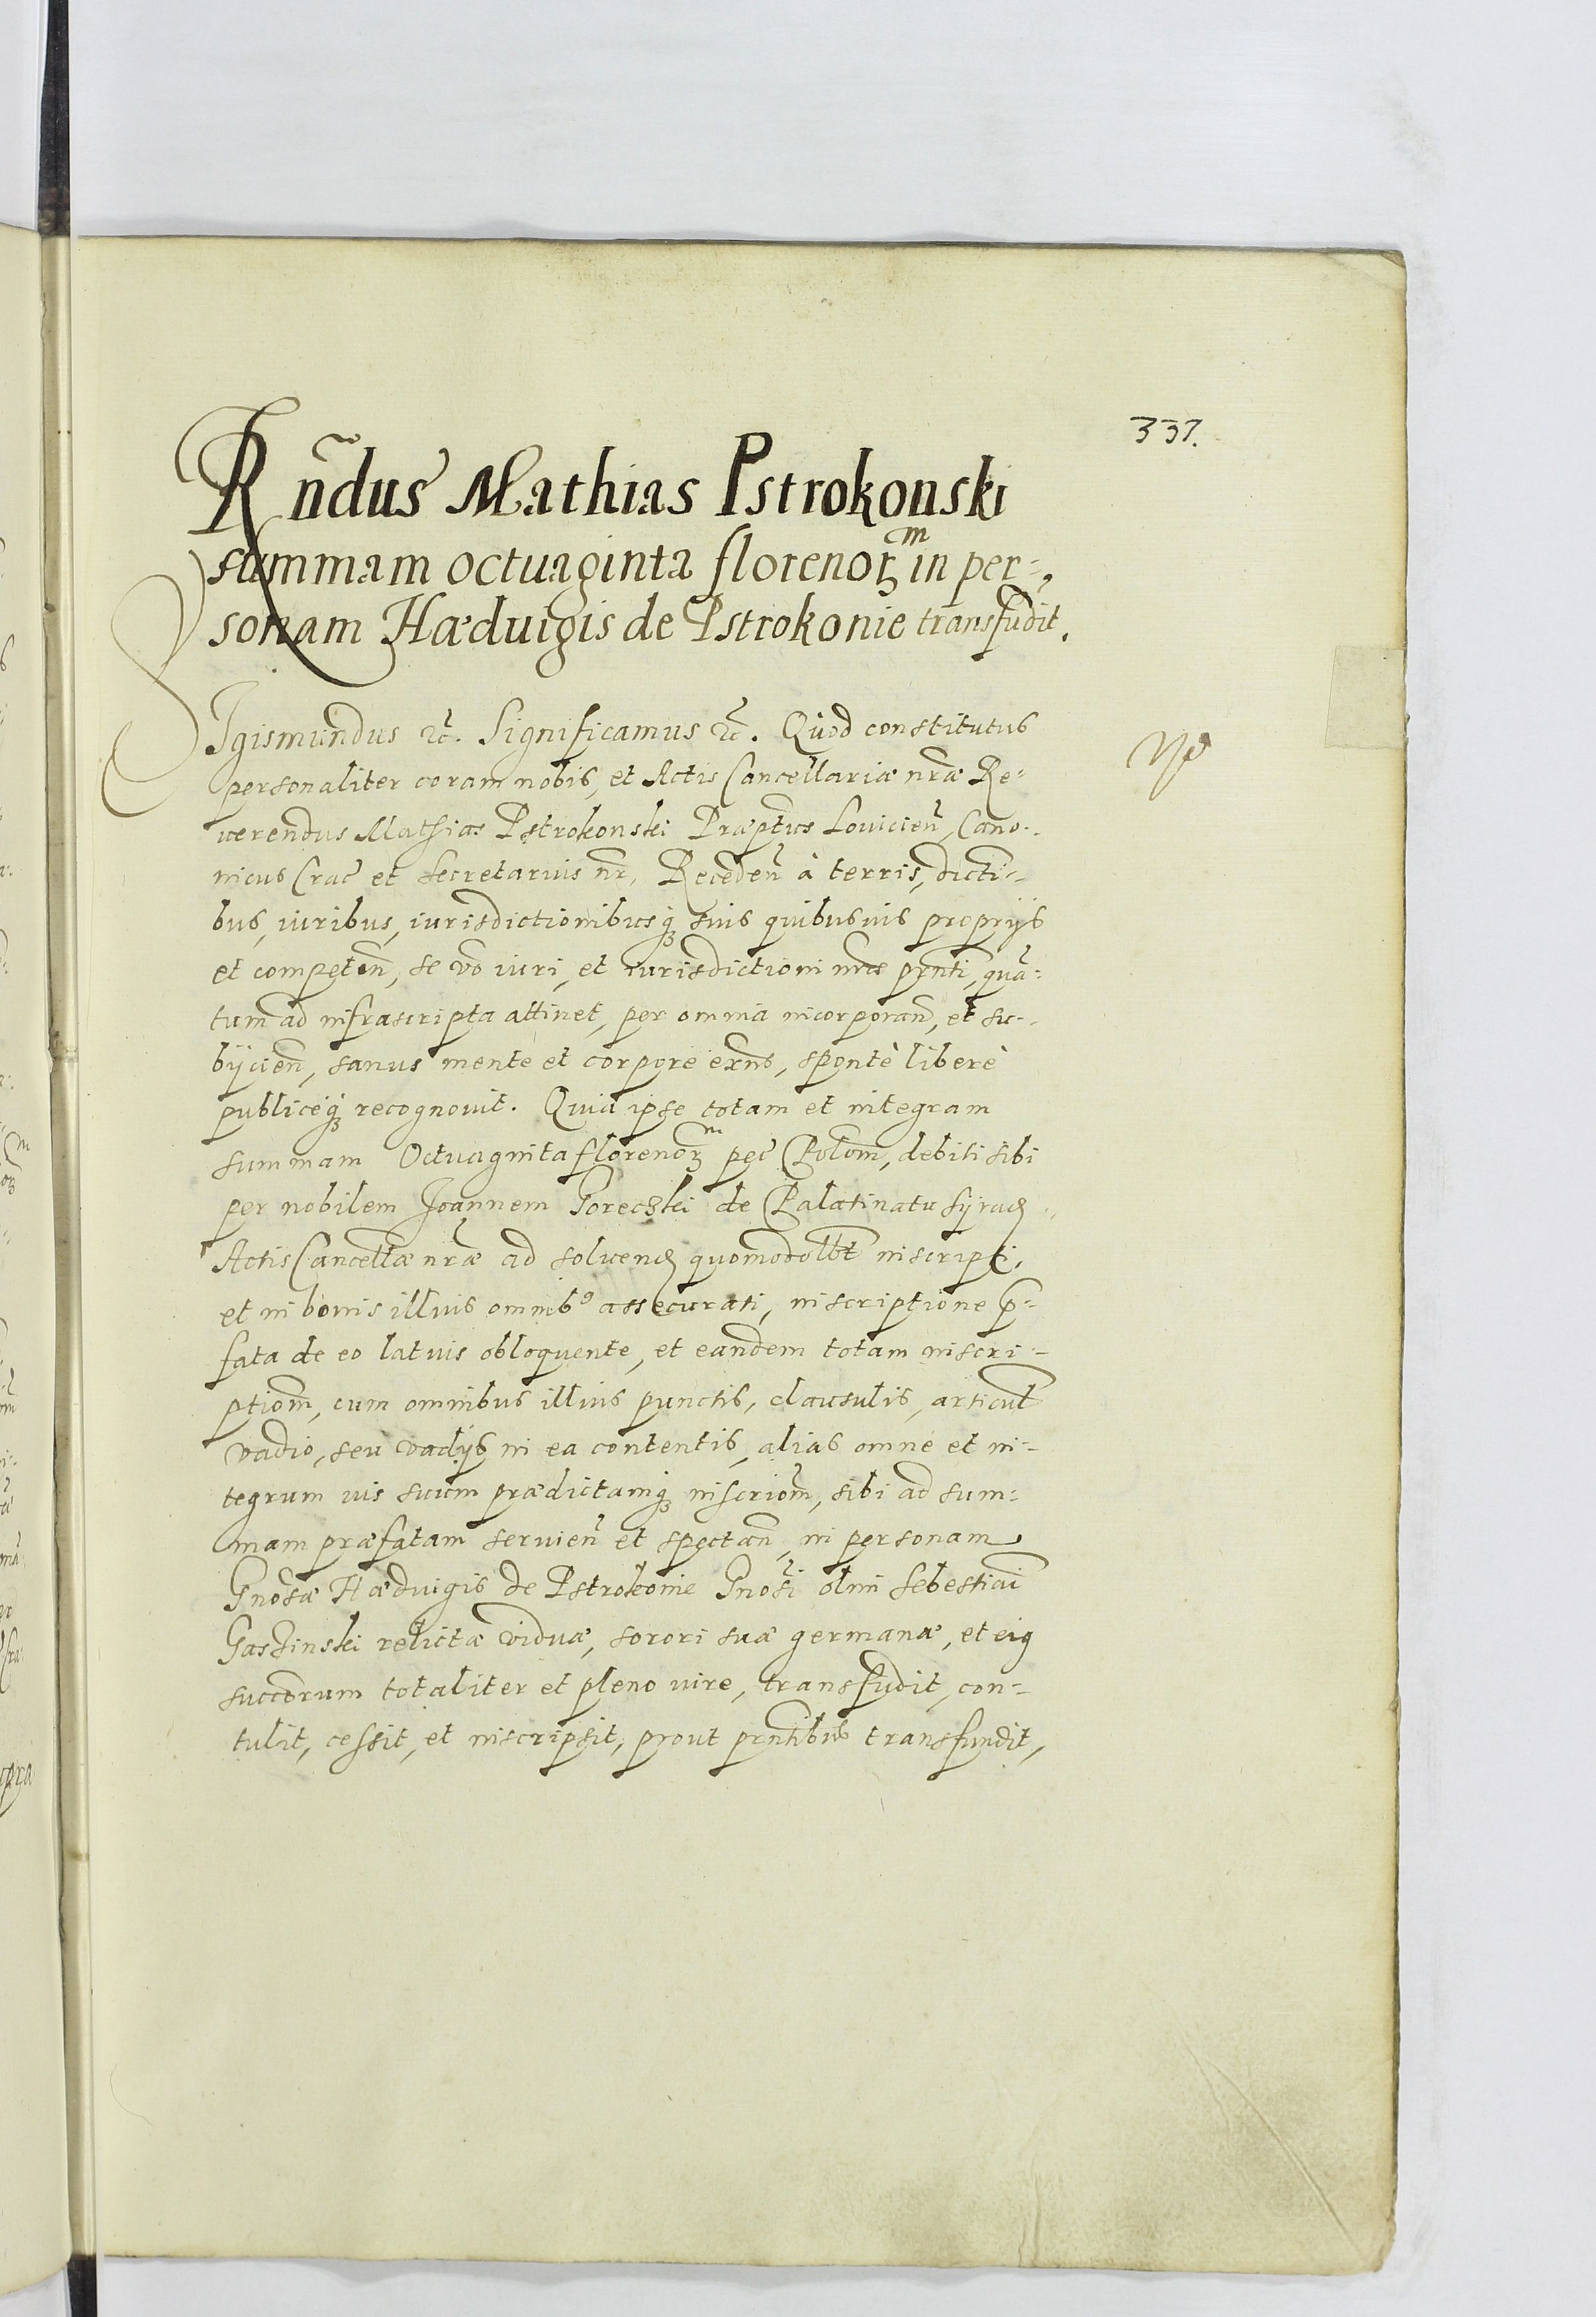 337.
Rñdus Mathias Pstrokonski
summam octuaginta florenoꝝᵐ in per=
sonam Hæduigis de Pstrokonie transfudit.
SIgismundus ꝛc̃. Significamus ꝛc̃. Quod constitutus
personaliter coram nobis, et Actis Cancellariæ nr̃æ Re=
uerendus Mathias Pstrokonski Præptus Louicien̄, Cano=
nicus Crac̃ et Secretarius nr̃, Receden̄ à terris, dicti=
bus, iuribus, iurisdictionibusq́ꝫ suis quibusuis proprijs
et competen̄, se vo iuri, et iurisdictioni nr̃æ prn̄ti, qua=
tum ad infrascripta attinet, per omnia incorporan̄, et su=
bijcien̄, sanus mente et corpore exn̄s, spontè liberè
publiceq́ꝫ recognouit. Quia ipse totam et integram
summam Octuaginta florenoꝝᵐ pec̃ Polon̄, debiti sibi
per nobilem Joannem Goreczki de Palatinatu Syradꝭ
Actis Cancellæ nr̃æ ad soluendꝭ quomodolbt inscripti,
et in bonis illius omnibꝰ assecurati, inscriptione p̄=
fata de eo latius obloquente, et eandem totam inscri=
ptiom̄, cum omnibus illius punctis, clausulis, articul̃
vadio, seu vadijs in ea contentis, alias omne et in=
tegrum ius suum prædictamq́ꝫ inscriom̄, sibi ad sum=
mam præfatam seruien̄ et spectan̄, in personam
Gnosæ Hæduigis de Pstrokonie Gnosi olim Sebestiani
Gaszinski relictæ viduæ, sorori suæ germanæ, et eiꝰ
succorum totaliter et pleno iure, transfudit, con=
tulit, cessit, et inscripsit, prout prn̄tibus transfundit,